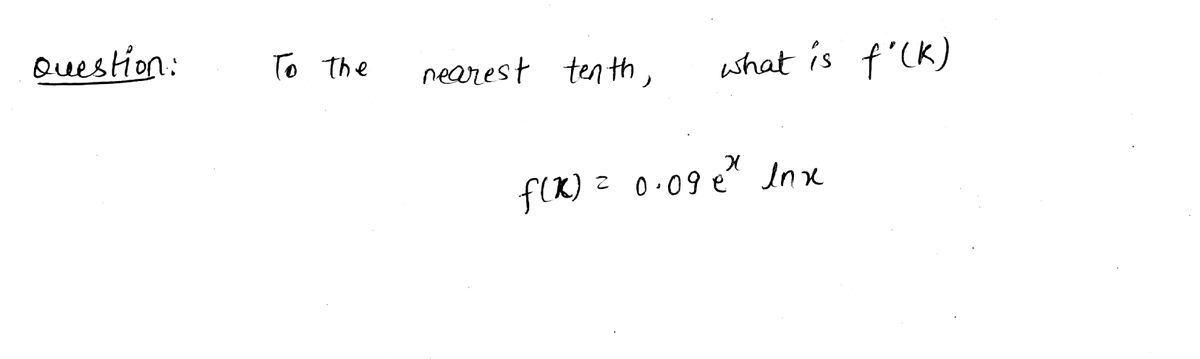 Question: To the nearest tenth, what is f'(K)
f(x) = 0.09 e^x ln x